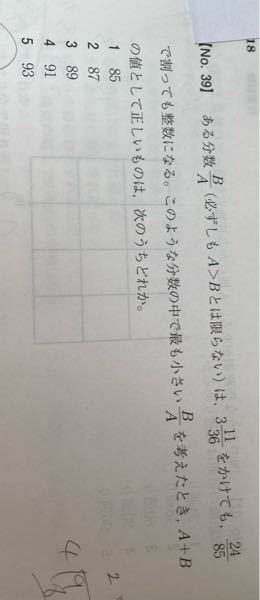 18
[No. 39] ある分数 B/A (必ずしもA>Bとは限らない)は、3 11/36 をかけても、24/85
で割っても整数になる。このような分数の中で最も小さい B/A を考えたとき、A+B
の値として正しいものは、次のうちどれか。
1 85
2 87
3 89
4 91
5 93